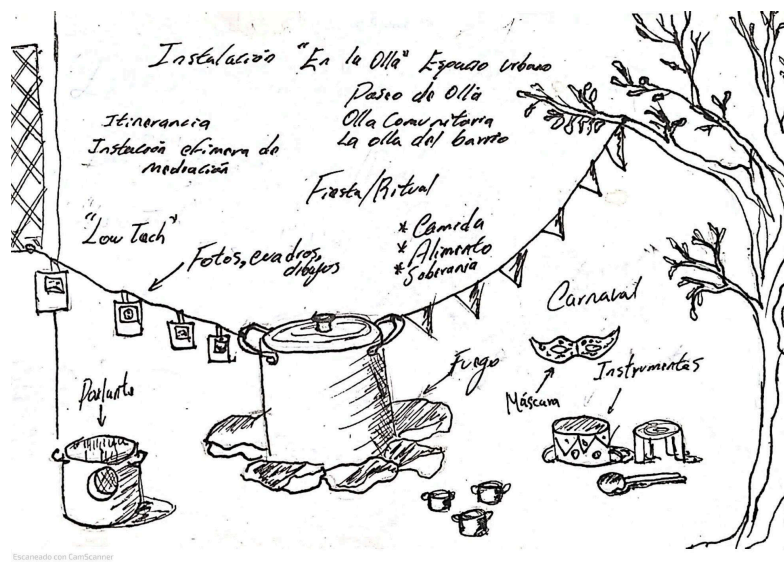 Instalación "En la Olla" Espacio urbano
Paseo de Olla
Olla Comunitaria
La olla del barrio
Itinerancia
Instación efimera de
mediación
Fiesta/Ritual
"Low Tach"
Fotos, cuadros,
dibujos
* Comida
* Alimento
* Soberania
Carnaval
Fuego
Máscara
Instrumentos
Parlante
Escaneado con CamScanner